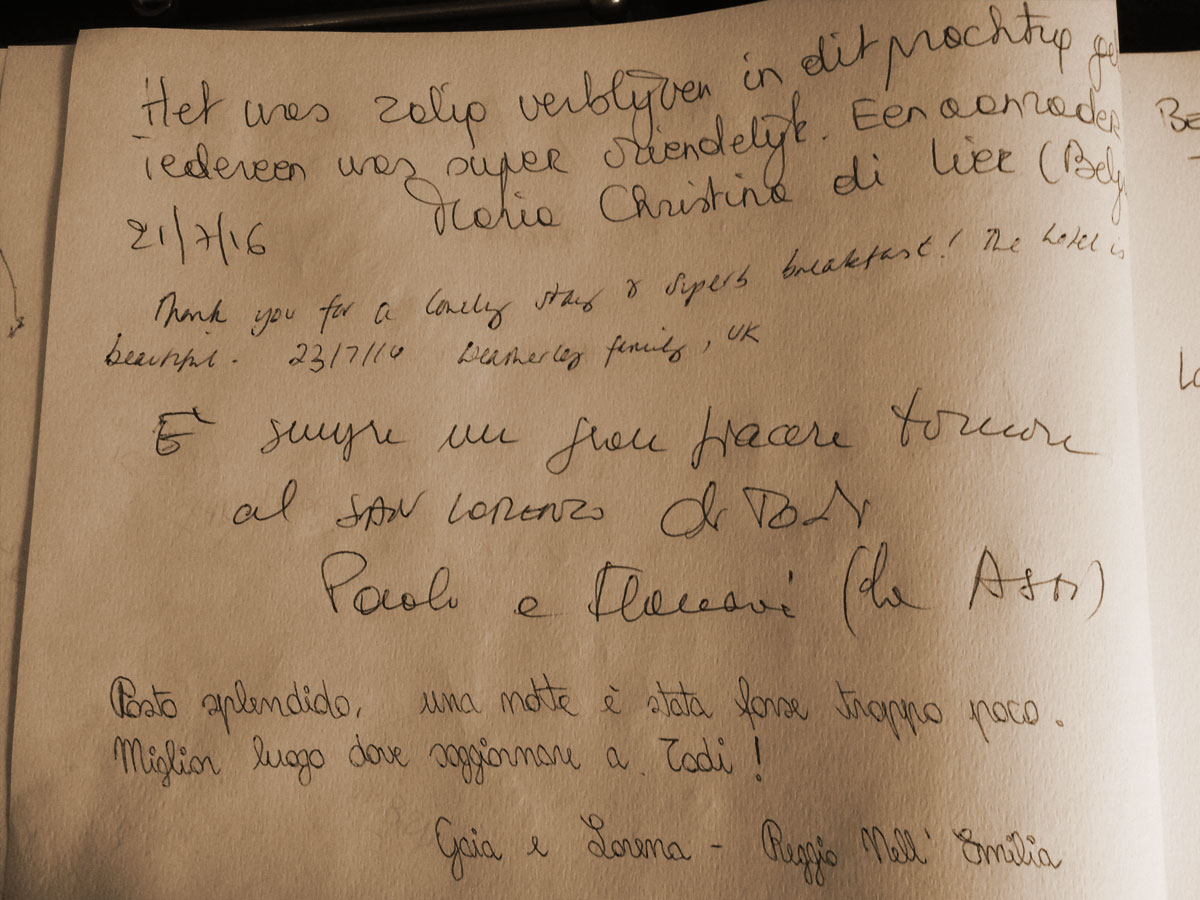 Het was zalig verblijven in dit prachtig
iedereen was super vriendelijk. Een aanrader
Maria Christina di Lier (Belg
21/7/16
Thank you for a lovely stay & superb breakfast! The hotel is
beautiful. 23/7/16 Weatherley family, UK
È sempre un gran piacere tornare
al SAN LORENZO di TODI
Paolo e (da
Posto splendido, una notte è stata forse troppo poco.
Miglior luogo dove soggiornare a Todi!
Gaia e Lorena - Reggio Nell' Emilia